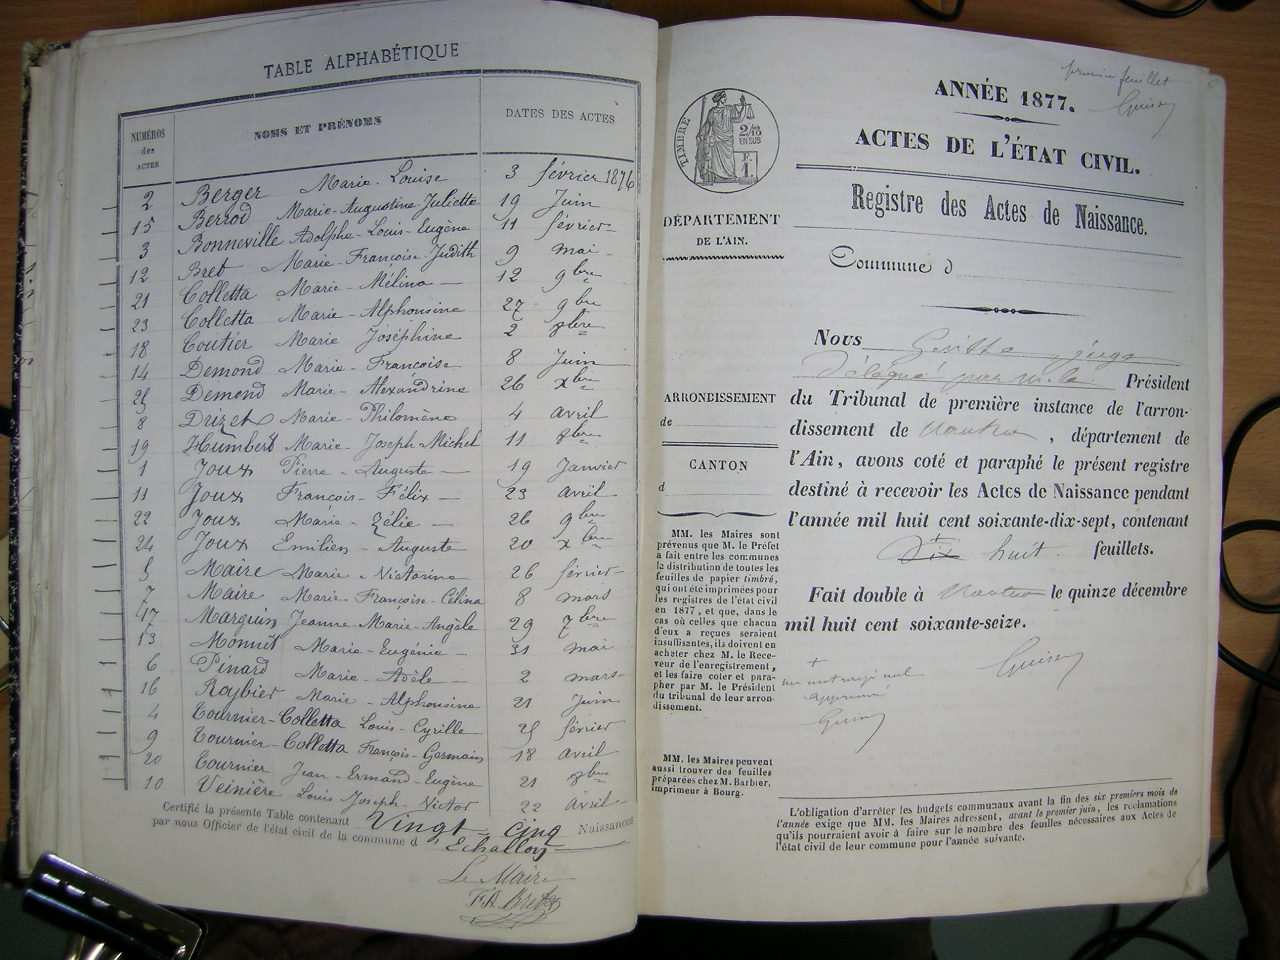 TABLE ALPHABÉTIQUE
NUMÉROS des ACTES
NOMS ET PRÉNOMS
DATES DES ACTES
2 Berger Marie-Louise 3 février 1876
15 Berrod Marie-Augustine Juliette 19 Juin
3 Bonneville Adolphe-Louis-Eugène 11 février
12 Bret Marie-Françoise-Judith 9 mai
21 Colletta Marie-Mélina 12 9bre
23 Colletta Marie-Alphonsine 27 9bre
18 Coutier Marie Joséphine 2 8bre
14 Demond Marie-Françoise 8 Juin
25 Demond Marie-Alexandrine 26 xbre
8 Drizet Marie-Philomène 4 avril
19 Humbert Marie-Joseph-Michel 11 8bre
1 Joux Pierre-Auguste 19 Janvier
11 Joux François-Félix 23 avril
22 Joux Marie-Zélie 26 9bre
24 Joux Emilien-Auguste 20 xbre
5 Maire Marie-Victorine 26 février
7 Maire Marie-Françoise-Célina 8 mars
17 Marguin Jeanne-Marie-Angèle 29 7bre
13 Monnet Marie-Eugénie 31 mai
6 Pinard Marie-Adèle 2 mars
16 Raybier Marie-Alphonsine 21 Juin
4 Tournier-Colletta Louis-Cyrille 25 février
9 Tournier-Colletta François-Germain 18 avril
20 Tournier Jean-Ermand-Eugène 21 8bre
10 Veinière Louis Joseph-Victor 22 avril
Certifié la présente Table contenant Vingt-cinq Naissances
par nous Officier de l'état civil de la commune d'Echallon
Le Maire
premier feuillet
ANNÉE 1877.
ACTES DE L'ÉTAT CIVIL.
Registre des Actes de Naissance.
Commune d
TIMBRE
2/10
EN SUS
F.
1.
DÉPARTEMENT
DE L'AIN.
ARRONDISSEMENT
de
CANTON
d
MM. les Maires sont
prévenus que M. le Préfet
a fait entre les communes
la distribution de toutes les
feuilles de papier timbré,
qui ont été imprimées pour
les registres de l'état civil
en 1877, et que, dans le
cas où celles que chacun
d'eux a reçues seraient
insuffisantes, ils doivent en
acheter chez M. le Rece-
veur de l'enregistrement,
et les faire coter et para-
pher par M. le Président
du tribunal de leur arron-
dissement.
MM. les Maires peuvent
aussi trouver des feuilles
préparées chez M. Barbier,
imprimeur à Bourg.
Nous juge
délégué par m. le Président
du Tribunal de première instance de l'arron-
dissement de Nantua, département de
l'Ain, avons coté et paraphé le présent registre
destiné à recevoir les Actes de Naissance pendant
l'année mil huit cent soixante-dix-sept, contenant
Dix huit feuillets.
Fait double à Nantua le quinze décembre
mil huit cent soixante-seize.
un mot rayé nul
approuvé
L'obligation d'arrêter les budgets communaux avant la fin des six premiers mois de
l'année exige que MM. les Maires adressent, avant le premier juin, les réclamations
qu'ils pourraient avoir à faire sur le nombre des feuilles nécessaires aux Actes de
l'état civil de leur commune pour l'année suivante.